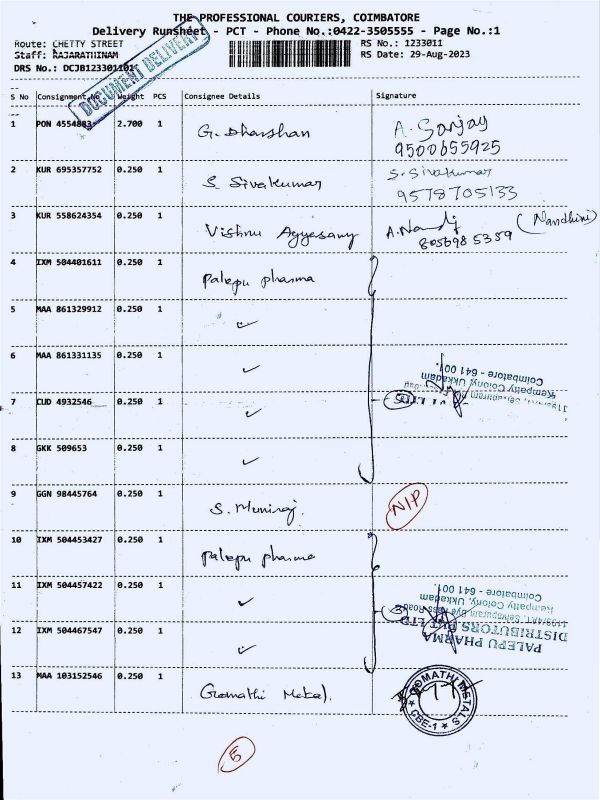 THE PROFESSIONAL COURIERS, COIMBATORE
Delivery Runsheet - PCT - Phone No.:0422-3505555 - Page No.:1
Route: CHETTY STREET
RS No.: 1233011
Staff: RAJARATHINAM
RS Date: 29-Aug-2023
DRS No.: DCJB1233011011
DOCUMENT DELIVERY
S No Consignment No Weight PCS Consignee Details Signature
1 PON 4554883 2.700 1 G. Dharshan A. Sanjay
9500655925
2 KUR 695357752 0.250 1 S. Sivakumar S. Sivakumar
9578705133
3 KUR 558624354 0.250 1 Vishnu A. Nandj (Nandhini)
8056985359
4 IXM 504401611 0.250 1 Palepu pharma
5 MAA 861329912 0.250 1 ✓
6 MAA 861331135 0.250 1 ✓
Coimbatore - 641 001.
Kempatty Colony, Ukkadam
7 CUD 4932546 0.250 1 ✓ 5
8 GKK 509653 0.250 1 ✓
9 GGN 98445764 0.250 1 S. Muniraj. N/P
10 IXM 504453427 0.250 1 Palepu pharma
11 IXM 504457422 0.250 1 ✓ 3
Coimbatore - 641 001
Kempatty Colony, Ukkadam
12 IXM 504467547 0.250 1 ✓
DISTRIBUTORS PVT LTD
PALEPU PHARMA
13 MAA 103152546 0.250 1 Gomathi Metal.
GOMATHI METALS
CBE-1
5